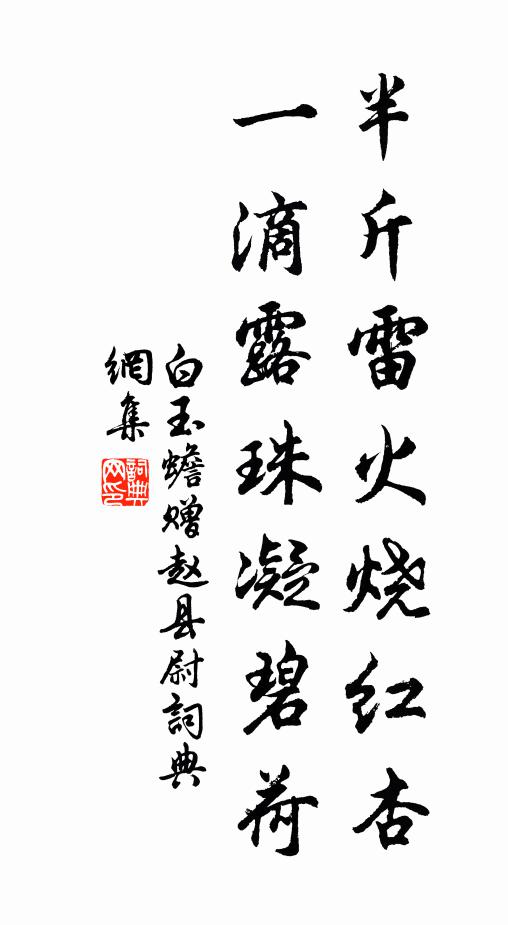 半斤雷火烧红杏
一滴露珠凝碧荷
白玉蟾赠赵县尉詞典
網集
詞典
网印